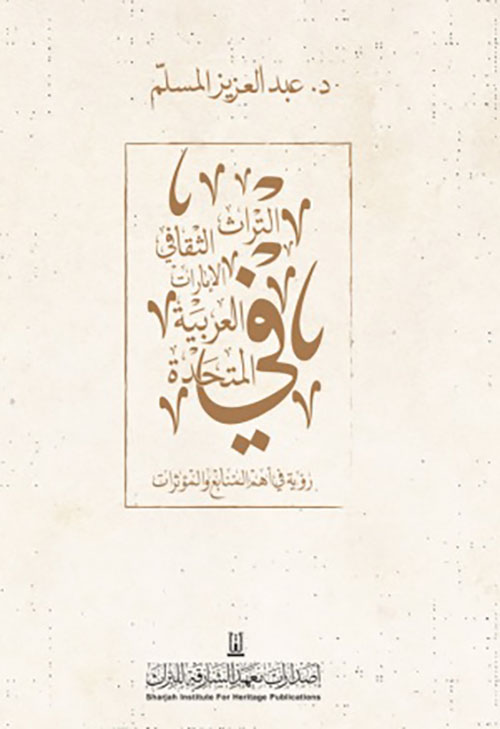 د. عبد العزيز المسلّم
التراث
الثقافي
في
الإمارات
العربية
المتحدة
رؤية في أهم المنابع والمؤثرات
إصدارات معهد الشارقة للتراث
Sharjah Institute For Heritage Publications